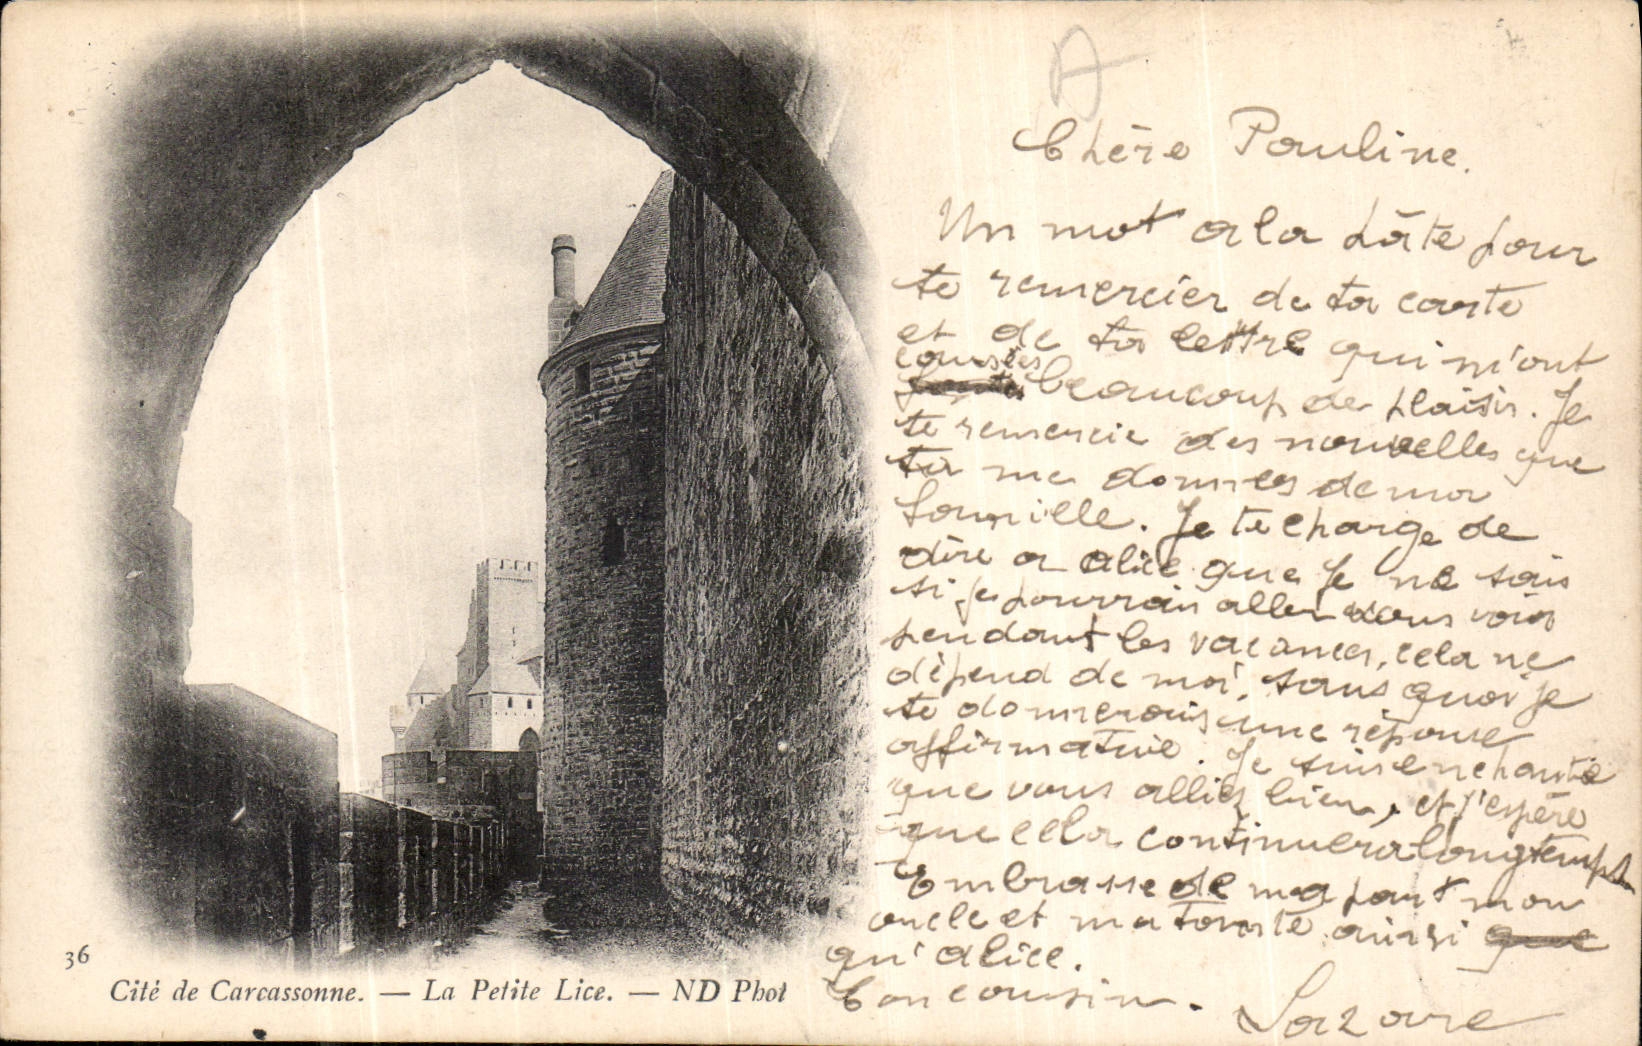 A
Chère Pauline.
Un mot a la hâte pour
te remercier de ta carte
et de ta lettre qui m'ont
causées
beaucoup de plaisir. Je
te remercie des nouvelles que
tu me donnes de ma
famille. Je te charge de
dire a Alice que je ne sais
si je pourrais aller vous voir
pendant les vacances, cela ne
dépend de moi, sans quoi je
te donnerais une réponse
affirmative. Je suis enchanté
que vous alliez bien, et j'espère
que cela continuera longtemps
Embrasse de ma part mon
oncle et ma tante ainsi que
qu'Alice.
Ton cousin.
Lazare
36
Cité de Carcassonne. — La Petite Lice. — ND Phot